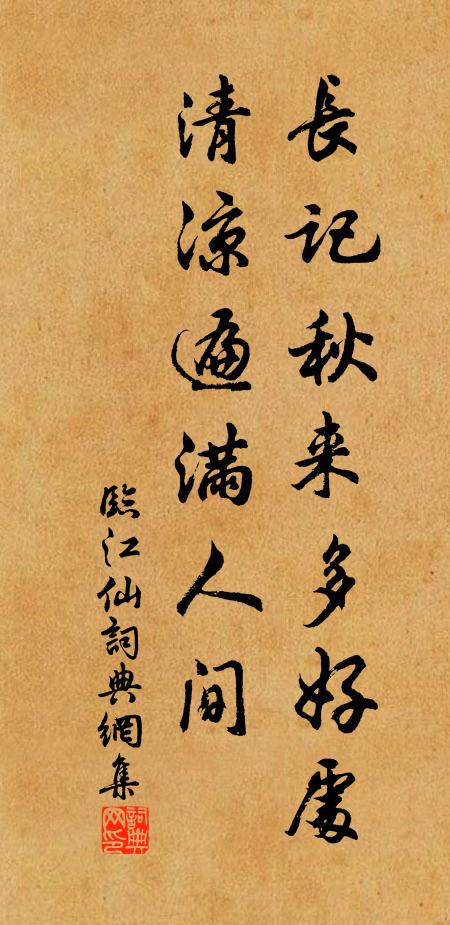 長记秋来多好處
清凉遍满人间
臨江仙詞典網集
詞典网印